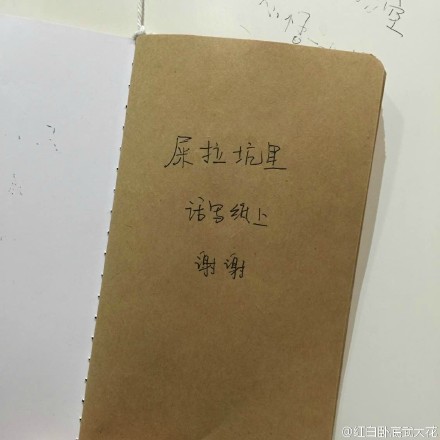 屎拉坑里
话写纸上
谢谢
@红白卧底武大花